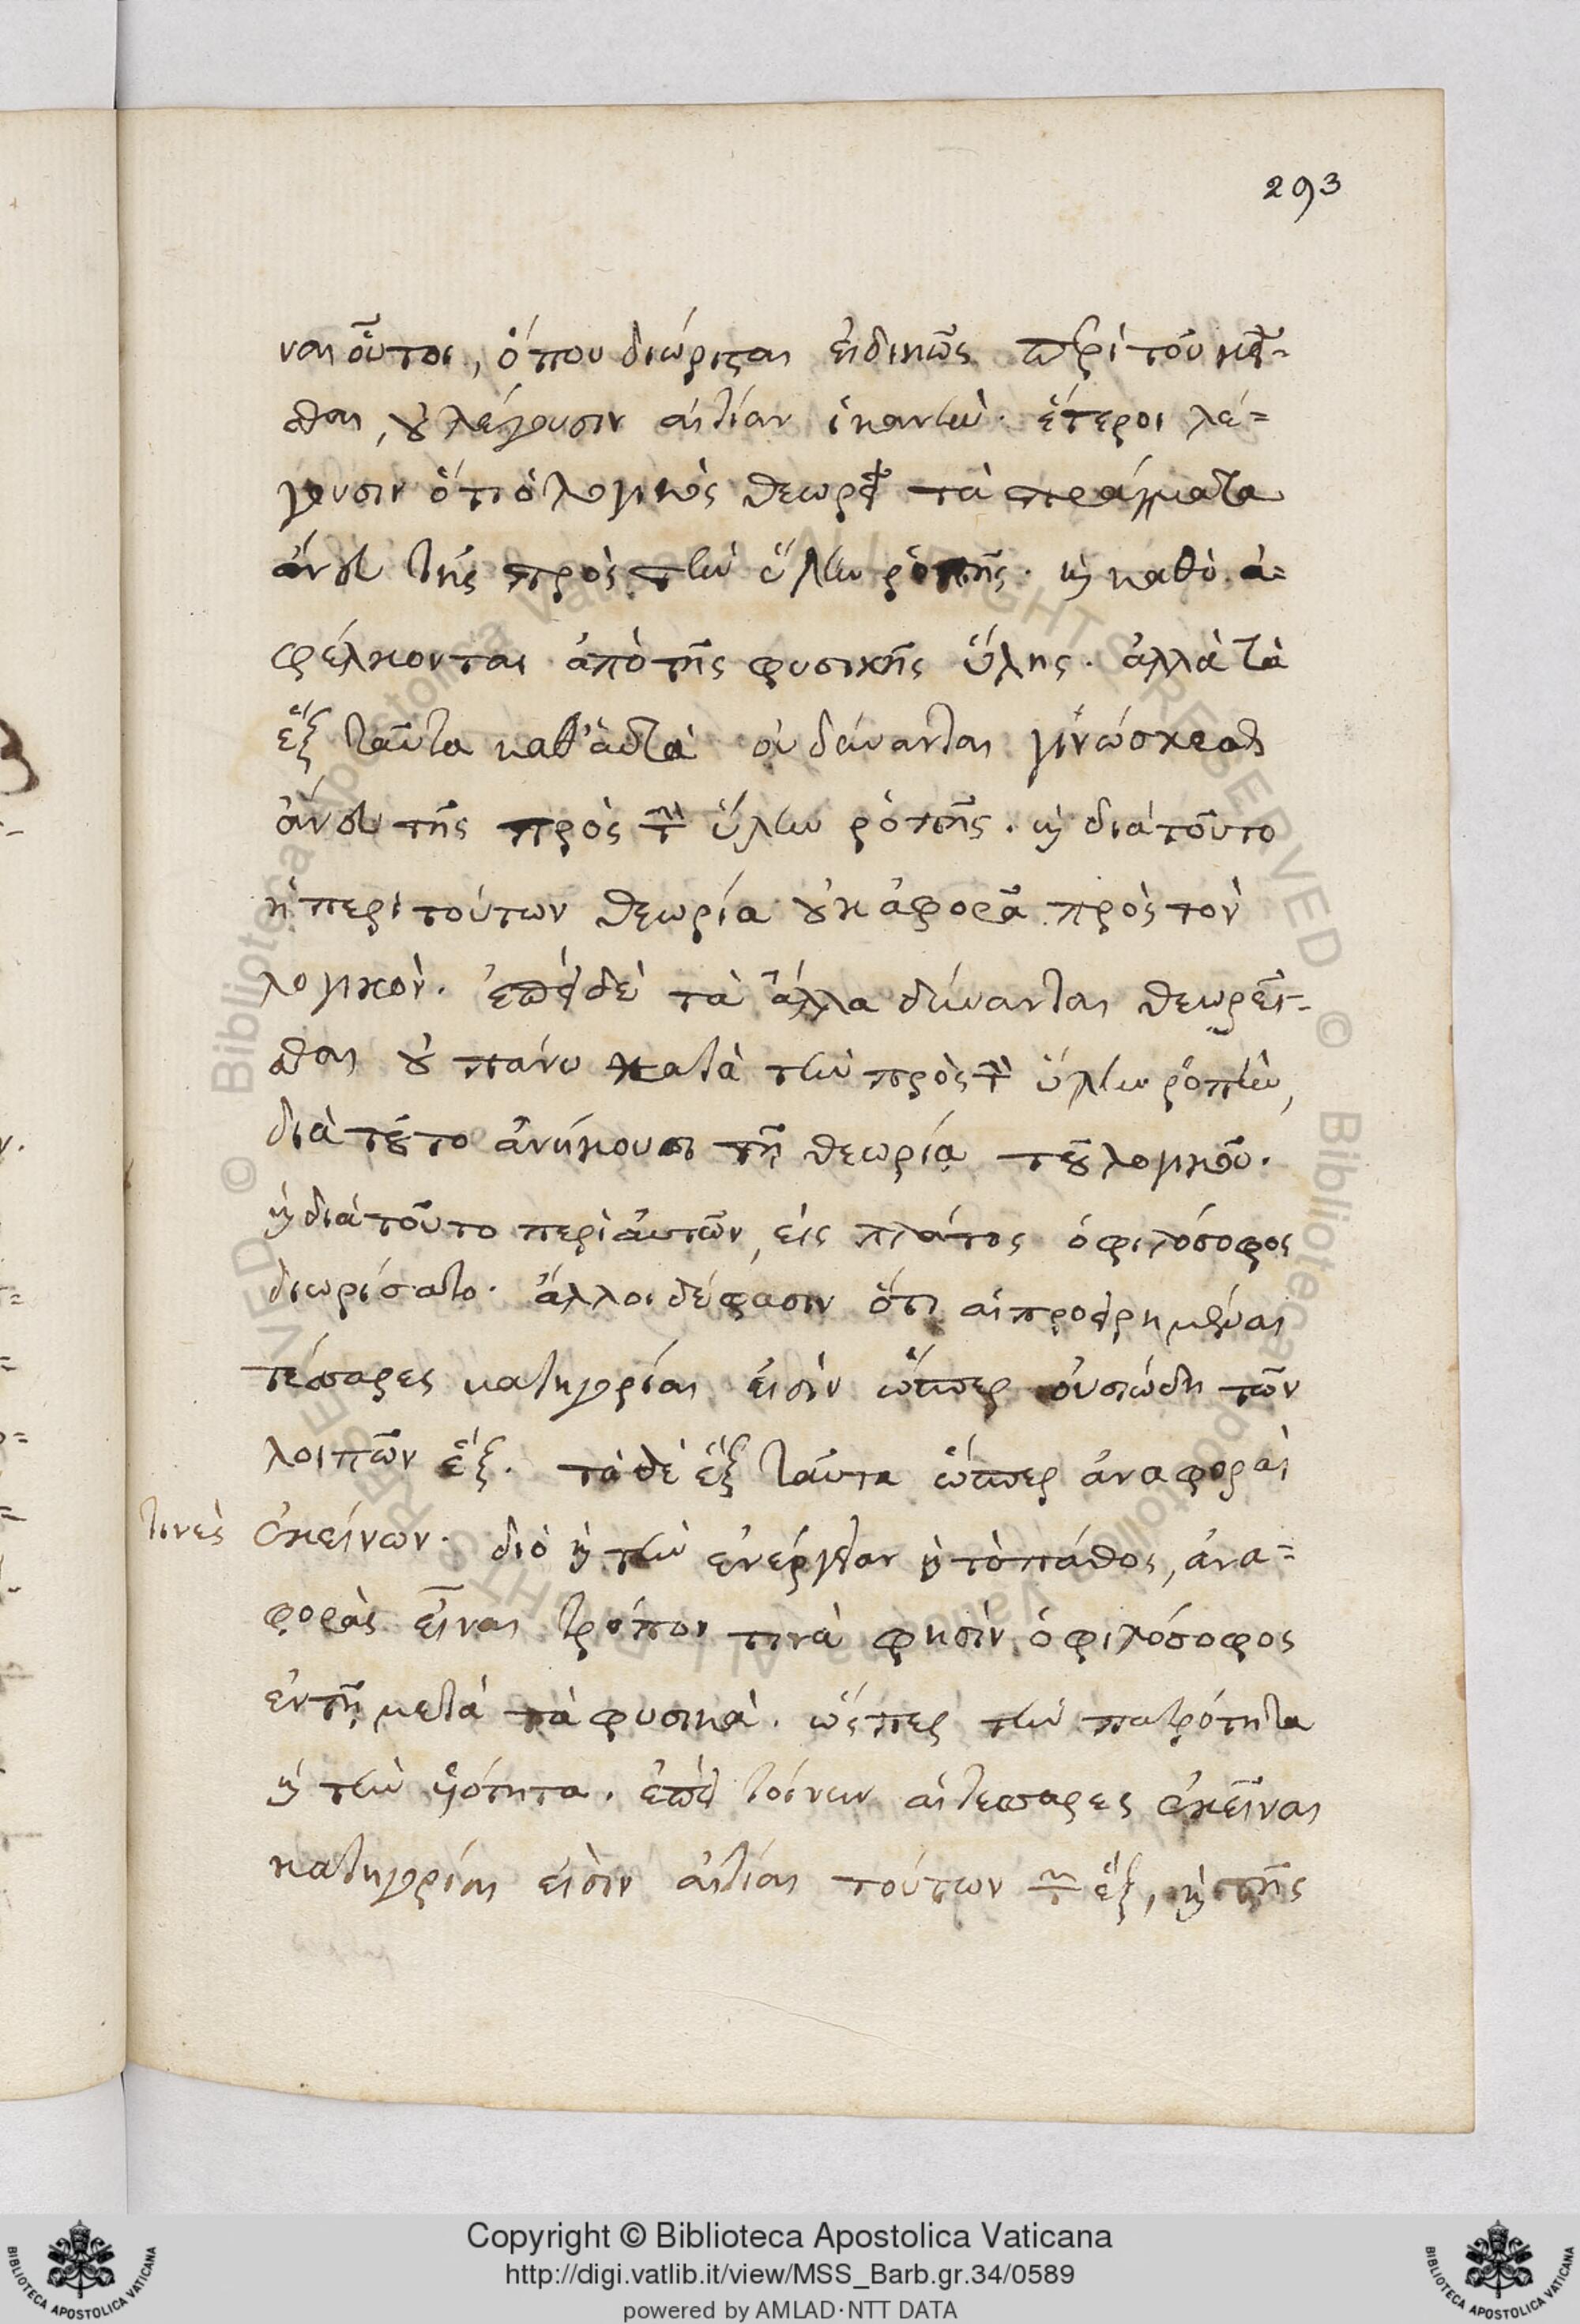 293
ναι οὗτοι, ὅπου διώρισται εἰδικῶς περὶ τοῦ κεῖ-
σθαι, οὐ λέγουσιν αἰτίαν ἱκανήν. ἕτεροι λέ-
γουσιν ὅτι ὁ λογικὸς θεωρεῖ τὰ πράγματα
ἄνευ τῆς πρὸς τὴν ὕλην ῥοπῆς. καὶ καθὸ ἀ-
φέλκονται ἀπὸ τῆς φυσικῆς ὕλης. ἀλλὰ τὰ
ἓξ ταῦτα καθ' αὑτὰ οὐ δύνανται γινώσκεσθαι
ἄνευ τῆς πρὸς τὴν ὕλην ῥοπῆς. καὶ διὰ τοῦτο
ἡ περὶ τούτων θεωρία οὐκ ἀφορᾶ πρὸς τὸν
λογικὸν. ἐπεὶ δὲ τὰ ἄλλα δύνανται θεωρεῖ-
σθαι οὐ πάνυ κατὰ τὴν πρὸς τὴν ὕλην ῥοπὴν,
διὰ τοῦτο ἀνήκουσι τῇ θεωρίᾳ τοῦ λογικοῦ.
καὶ διὰ τοῦτο περὶ αὐτῶν, εἰς πλάτος ὁ φιλόσοφος
διωρίσατο. ἄλλοι δέ φασιν ὅτι αἱ προειρημέναι
τέσσαρες κατηγορίαι εἰσὶν ὥσπερ οὐσιώδη τῶν
λοιπῶν ἕξ. τὰ δὲ ἓξ ταῦτα ὥσπερ ἀναφοραὶ
τινὲς ἐκείνων. διὸ καὶ τὴν ἐνέργειαν καὶ τὸ πάθος, ἀνα-
φορὰς εἶναι τρόπον τινὰ φησὶν ὁ φιλόσοφος
ἐν τῇ μετὰ τὰ φυσικὰ. ὥσπερ τὴν πατρότητα
καὶ τὴν υἱότητα. ἐπεὶ τοίνυν αἱ τέσσαρες ἐκεῖναι
κατηγορίαι εἰσὶν αἰτίαι τούτων τῶν ἕξ, καὶ τῆς
Copyright © Biblioteca Apostolica Vaticana
http://digi.vatlib.it/view/MSS_Barb.gr.34/0589
powered by AMLAD·NTT DATA